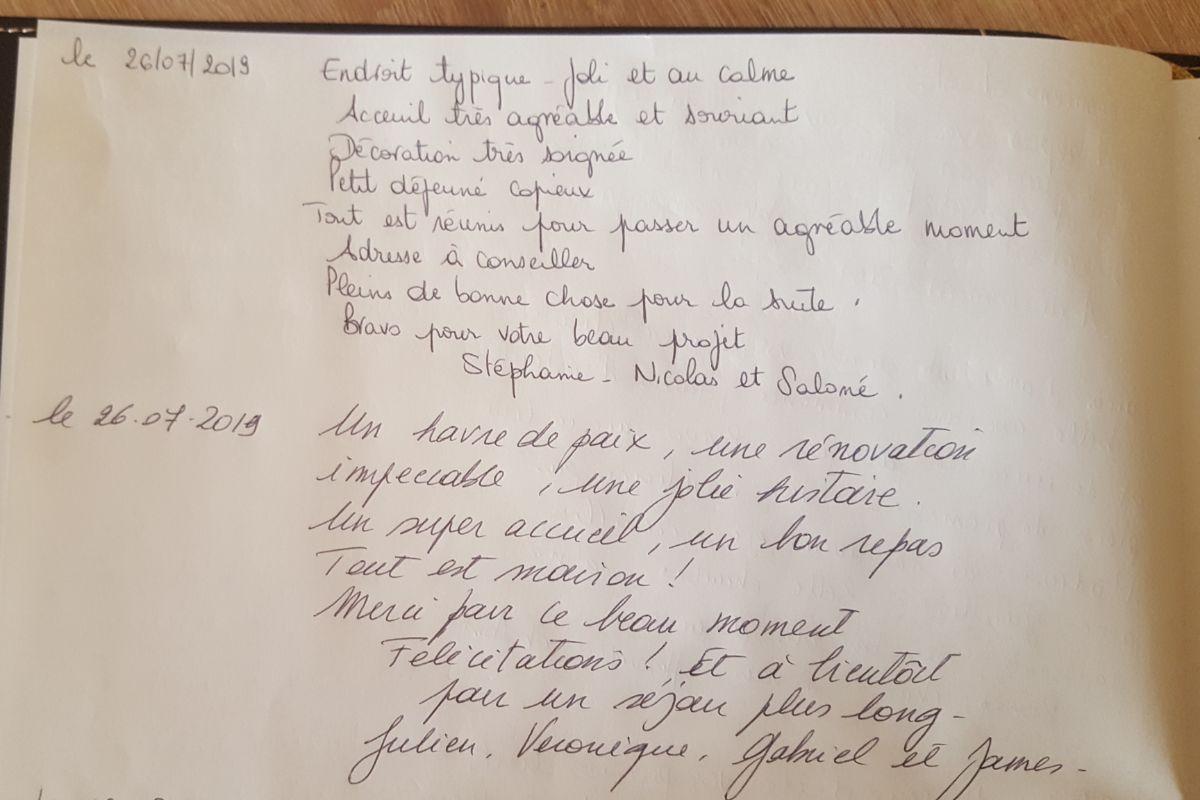 le 26/07/2019 Endroit typique - Joli et au calme
Acceuil très agréable et souriant
Décoration très soignée
Petit déjeuné copieux
Tout est réunis pour passer un agréable moment
Adresse à conseiller
Pleins de bonne chose pour la suite.
Bravo pour votre beau projet
Stéphanie - Nicolas et Salomé.
le 26.07.2019 Un havre de paix, une rénovation
impeccable, une jolie histoire.
Un super accueil, un bon repas
Tout est maison !
Merci pour ce beau moment
Félicitations ! Et à bientôt
pour un séjour plus long -
Julien, Veronique, Gabriel et James -